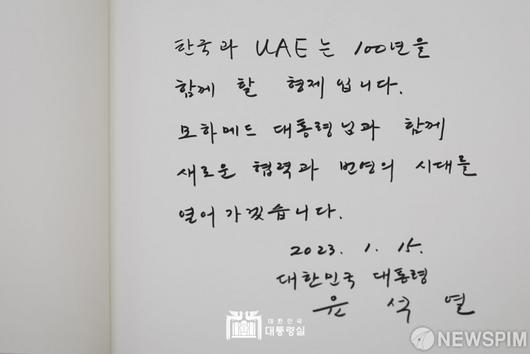 한국과 UAE는 100년을
함께 할 형제입니다.
모하메드 대통령님과 함께
새로운 협력과 번영의 시대를
열어 가겠습니다.
2023. 1. 15.
대한민국 대통령
윤 석 열
대한민국
대통령실
NEWSPIM